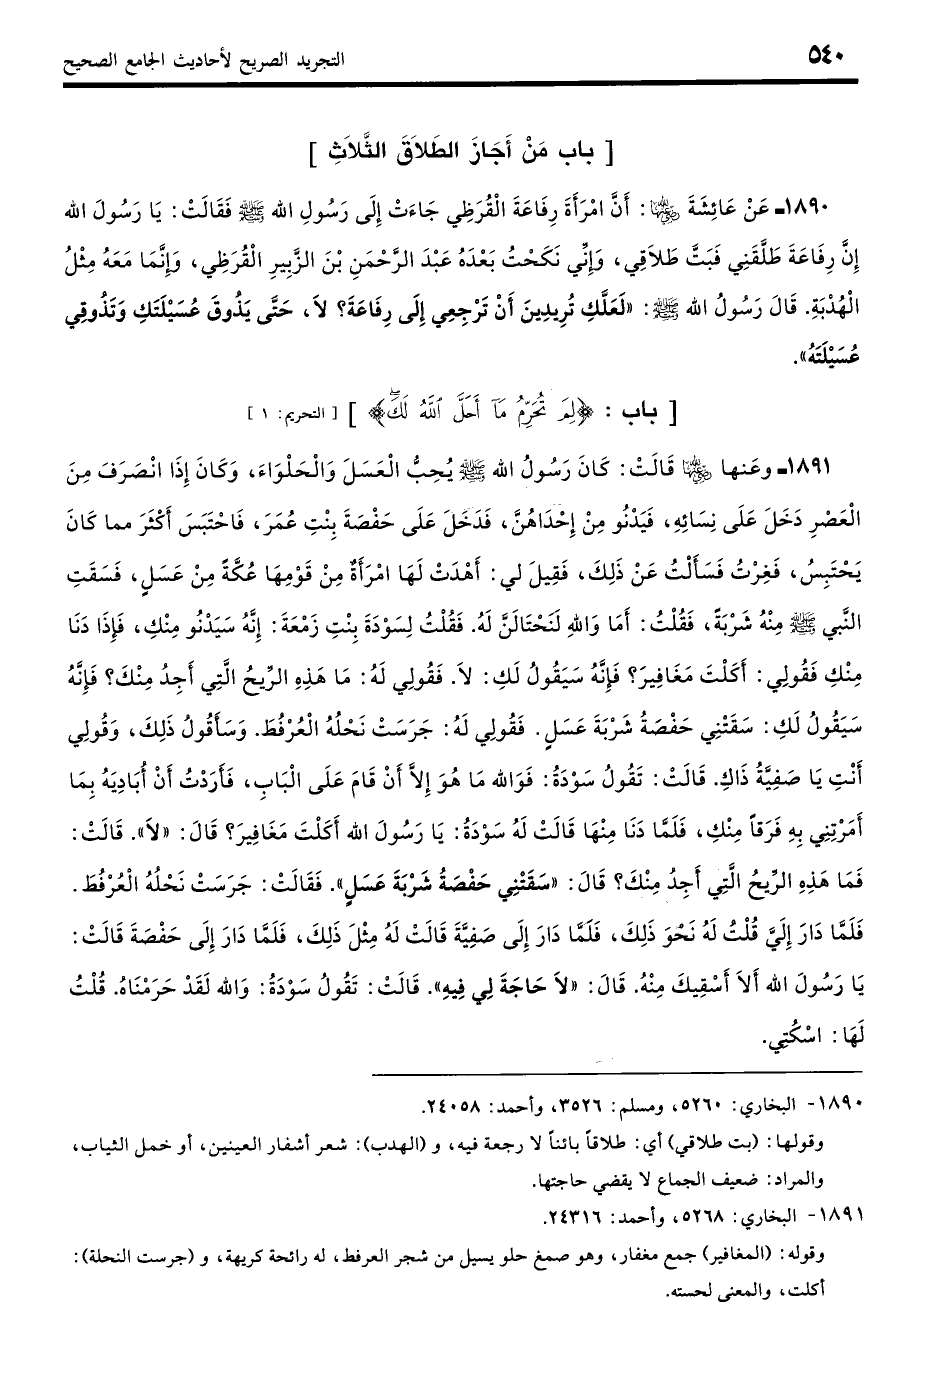 ٥٤٠
التجريد الصريح لأحاديث الجامع الصحيح
[ باب مَنْ أَجَازَ الطَلاَقَ الثَّلاَثِ ]
١٨٩٠ـ عَنْ عَائِشَةَ رضي الله عنها: أَنَّ امْرَأَةَ رِفَاعَةَ الْقُرَظِي جَاءَتْ إِلَى رَسُولِ الله ﷺ فَقَالَتْ: يَا رَسُولَ الله
إِنَّ رِفَاعَةَ طَلَّقَنِي فَبَتَّ طَلاَقِي، وَإِنِّي نَكَحْتُ بَعْدَهُ عَبْدَ الرَّحْمٰنِ بْنَ الزَّبِيرِ الْقُرَظِي، وَإِنَّمَا مَعَهُ مِثْلُ
الْهُدْبَةِ. قَالَ رَسُولُ الله ﷺ: «لَعَلَّكِ تُرِيدِينَ أَنْ تَرْجِعِي إِلَى رِفَاعَةَ؟ لاَ، حَتَّى يَذُوقَ عُسَيْلَتَكِ وَتَذُوقِي
عُسَيْلَتَهُ».
[ باب : ﴿لِمَ تُحَرِّمُ مَآ أَحَلَّ ٱللَّهُ لَكَ﴾ ] [ التحريم: ١ ]
١٨٩١ـ وعَنها رضي الله عنها قَالَتْ: كَانَ رَسُولُ الله ﷺ يُحِبُّ الْعَسَلَ وَالْحَلْوَاءَ، وَكَانَ إِذَا انْصَرَفَ مِنَ
الْعَصْرِ دَخَلَ عَلَى نِسَائِهِ، فَيَدْنُو مِنْ إِحْدَاهُنَّ، فَدَخَلَ عَلَى حَفْصَةَ بِنْتِ عُمَرَ، فَاحْتَبَسَ أَكْثَرَ مما كَانَ
يَحْتَبِسُ، فَغِرْتُ فَسَأَلْتُ عَنْ ذَلِكَ، فَقِيلَ لي: أَهْدَتْ لَهَا امْرَأَةٌ مِنْ قَوْمِهَا عُكَّةً مِنْ عَسَلٍ، فَسَقَتِ
النَّبي ﷺ مِنْهُ شَرْبَةً، فَقُلْتُ: أَمَا وَاللهِ لَنَحْتَالَنَّ لَهُ. فَقُلْتُ لِسَوْدَةَ بِنْتِ زَمْعَةَ: إِنَّهُ سَيَدْنُو مِنْكِ، فَإِذَا دَنَا
مِنْكِ فَقُولِي: أَكَلْتَ مَغَافِيرَ؟ فَإِنَّهُ سَيَقُولُ لَكِ: لاَ. فَقُولِي لَهُ: مَا هَذِهِ الرِيحُ الَّتِي أَجِدُ مِنْكَ؟ فَإِنَّهُ
سَيَقُولُ لَكِ: سَقَتْنِي حَفْصَةُ شَرْبَةَ عَسَلٍ. فَقُولِي لَهُ: جَرَسَتْ نَحْلُهُ الْعُرْفُطَ. وَسَأَقُولُ ذَلِكَ، وَقُولِي
أَنْتِ يَا صَفِيَّةُ ذَاكِ. قَالَتْ: تَقُولُ سَوْدَةُ: فَوَالله مَا هُوَ إِلاَّ أَنْ قَامَ عَلَى الْبَابِ، فَأَرَدْتُ أَنْ أُبَادِيَهُ بِمَا
أَمَرْتِنِي بِهِ فَرَقاً مِنْكِ، فَلَمَّا دَنَا مِنْهَا قَالَتْ لَهُ سَوْدَةُ: يَا رَسُولَ الله أَكَلْتَ مَغَافِيرَ؟ قَالَ: «لاَ». قَالَتْ:
فَمَا هَذِهِ الرِيحُ الَّتِي أَجِدُ مِنْكَ؟ قَالَ: «سَقَتْنِي حَفْصَةُ شَرْبَةَ عَسَلٍ». فَقَالَتْ: جَرَسَتْ نَحْلُهُ الْعُرْفُطَ.
فَلَمَّا دَارَ إِلَيَّ قُلْتُ لَهُ نَحْوَ ذَلِكَ، فَلَمَّا دَارَ إِلَى صَفِيَّةَ قَالَتْ لَهُ مِثْلَ ذَلِكَ، فَلَمَّا دَارَ إِلَى حَفْصَةَ قَالَتْ:
يَا رَسُولَ الله ألاَ أَسْقِيكَ مِنْهُ. قَالَ: «لاَ حَاجَةَ لِي فِيهِ». قَالَتْ: تَقُولُ سَوْدَةُ: وَالله لَقَدْ حَرَمْنَاهُ. قُلْتُ
لَهَا: اسْكُتِي.
١٨٩٠- البخاري: ٥٢٦٠، ومسلم: ٣٥٢٦، وأحمد: ٢٤٠٥٨.
وقولها: (بت طلاقي) أي: طلاقاً بائناً لا رجعة فيه، و (الهدب): شعر أشفار العينين، أو خمل الثياب،
والمراد: ضعيف الجماع لا يقضي حاجتها.
١٨٩١- البخاري: ٥٢٦٨، وأحمد: ٢٤٣١٦.
وقوله: (المغافير) جمع مغفار، وهو صمغ حلو يسيل من شجر العرفط، له رائحة كريهة، و (جرست النحلة):
أكلت، والمعنى لحسته.